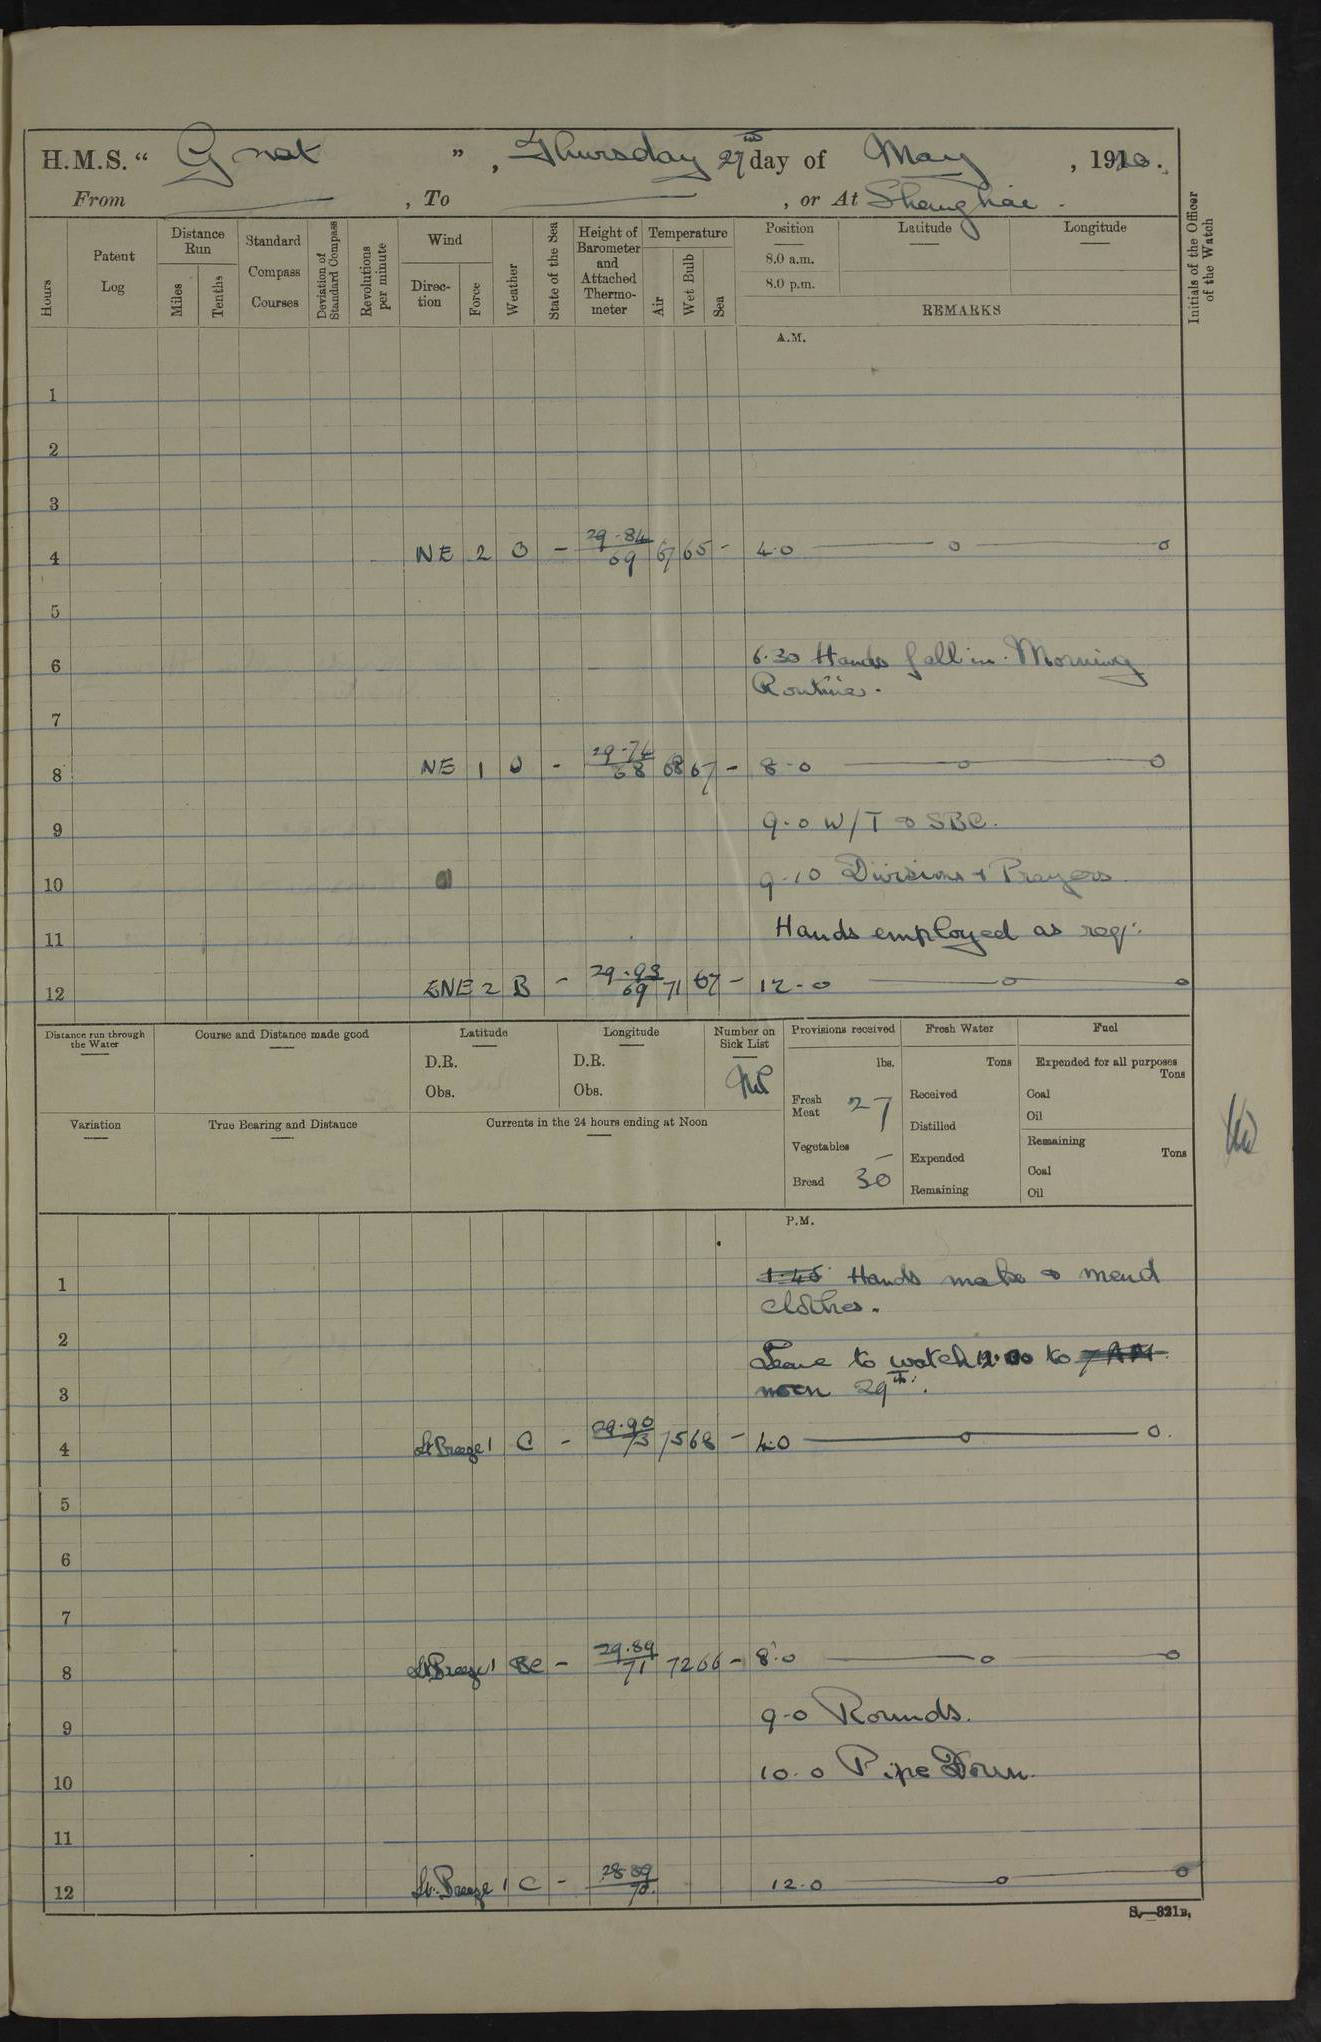 H.M.S. “ Gnat ” , Thursday 27th day of May , 1920 .
From — , To — , or At Shanghai .
Hours
Patent Log
Distance Run
Miles
Tenths
Standard Compass Courses
Deviation of Standard Compass
Revolutions per minute
Wind
Direction
Force
Weather
State of the Sea
Height of Barometer and Attached Thermometer
Temperature
Air
Wet Bulb
Sea
Position
8.0 a.m.
8.0 p.m.
Latitude
Longitude
REMARKS
Initials of the Officer of the Watch
A.M.
1
2
3
4 NE 2 O - 29.84/69 67 65 - 4.0 — o — o
5
6 6.30 Hands fall in. Morning
Routine.
7
8 NE 1 O - 29.74/68 68 67 - 8.0 — o — o
9 9.0 W/T & SBC.
10 9.10 Divisions & Prayers
11 Hands employed as req:
12 ENE 2 B - 29.93/69 71 67 - 12.0 — o — o
Distance run through the Water
Course and Distance made good
Latitude
D.R.
Obs.
Longitude
D.R.
Obs.
Number on Sick List
Nil
Provisions received
lbs.
Fresh Meat 27
Vegetables —
Bread 30
Fresh Water
Tons
Received
Distilled
Expended
Remaining
Fuel
Expended for all purposes
Tons
Coal
Oil
Remaining
Tons
Coal
Oil
Variation
True Bearing and Distance
Currents in the 24 hours ending at Noon
P.M.
1 1.45 Hands make & mend
clothes.
2 Leave to watch 12.00 to 7 AM
3 noon 29th.
4 Lt Breeze 1 C - 29.90/73 75 68 - 4.0 — o — o.
5
6
7
8 Lt Breeze 1 BC - 29.89/71 72 66 - 8.0 — o — o
9 9.0 Rounds.
10 10.0 Pipe Down.
11
12 Lt. Breeze 1 C - 28.89/70. 12.0 — o — o
S.—321B.